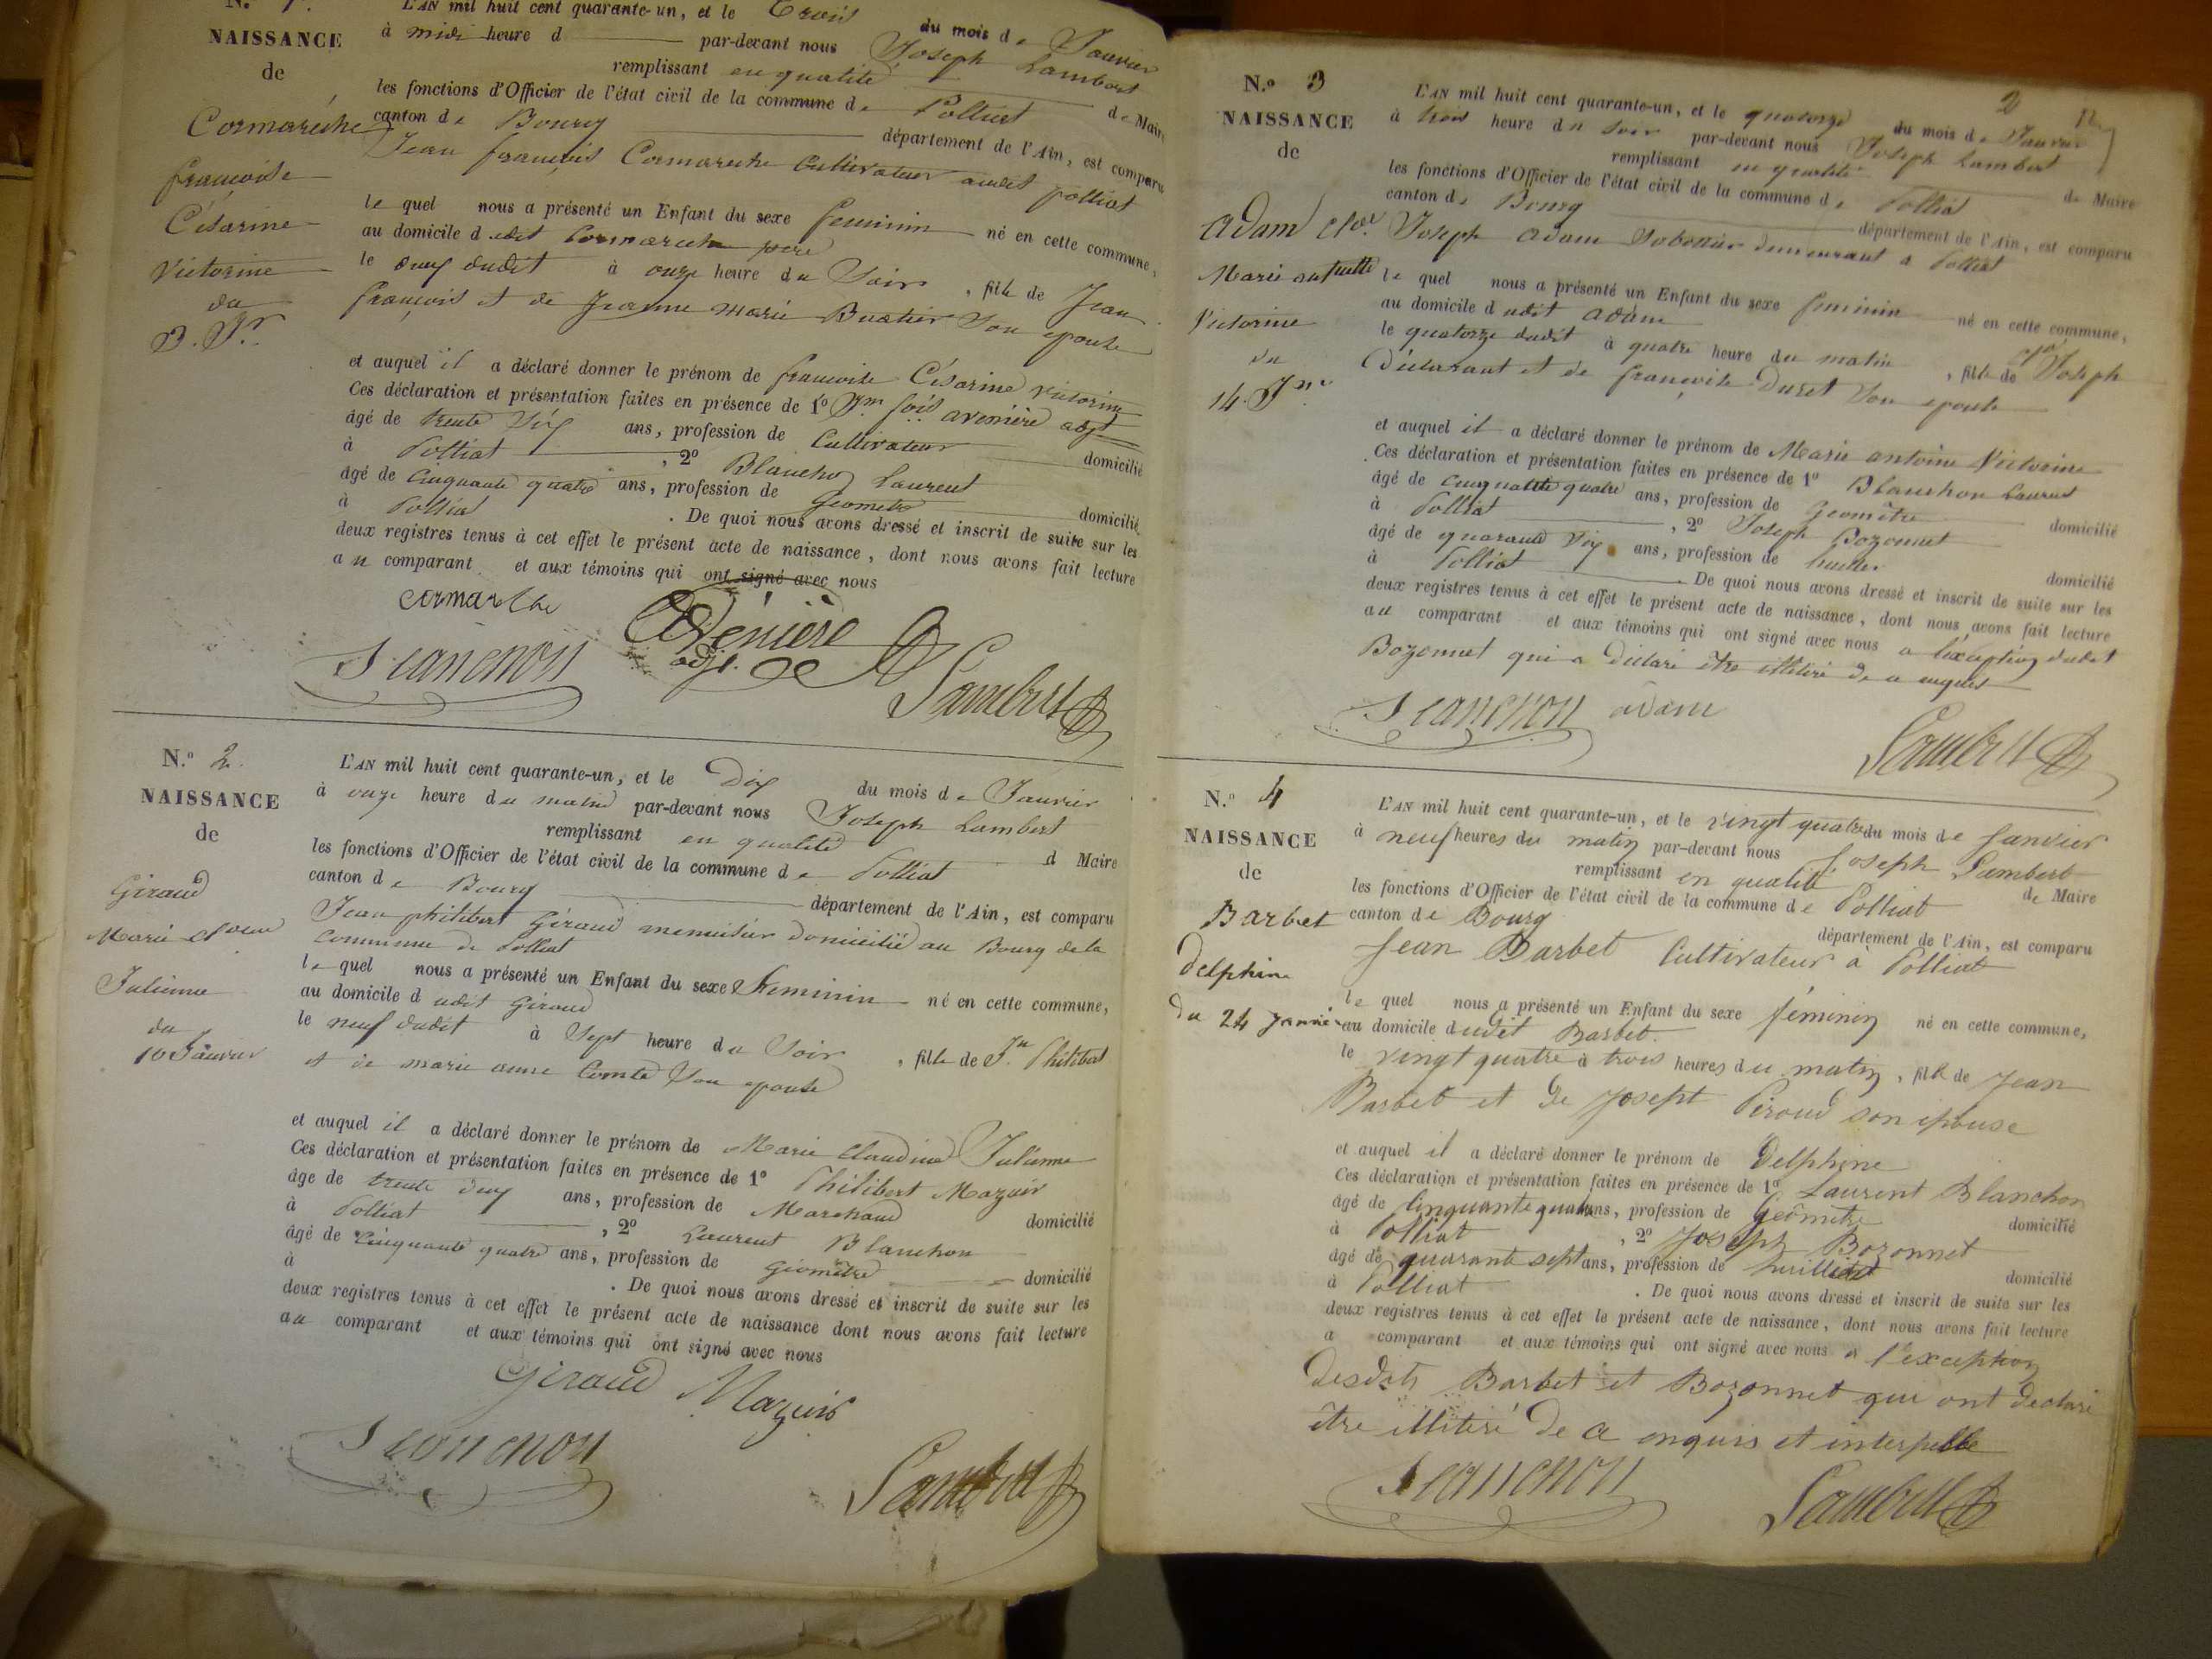 N.o 1.
NAISSANCE
de
Cormareche
françoise
Césarine
Victorine
du
3. Jr.
L'AN mil huit cent quarante-un, et le Trois du mois de Janvier
à midi heure d par-devant nous Joseph Lambert
remplissant en qualité de Maire
les fonctions d'Officier de l'état civil de la commune de Polliat
canton de Bourg département de l'Ain, est comparu
Jean françois Cormareche Cultivateur audit polliat
le quel nous a présenté un Enfant du sexe feminin né en cette commune,
au domicile dudit Cormareche pere
le deux dudit à onze heure du Soir, fille de Jean
françois et de Jeanne marie Buatier Son epouse
et auquel il a déclaré donner le prénom de francoise Césarine victorine
Ces déclaration et présentation faites en présence de 1o avenière adjt
âgé de trente Six ans, profession de Cultivateur domicilié
à Polliat, 2o Blanchon Laurent
âgé de Cinquante quatre ans, profession de Geometre domicilié
à Polliat. De quoi nous avons dressé et inscrit de suite sur les
deux registres tenus à cet effet le présent acte de naissance, dont nous avons fait lecture
au comparant et aux témoins qui ont signé avec nous
Cormareche Avenière
adjt.
Blanchon Lambert
N.o 2.
NAISSANCE
de
Giraud
Marie cl
Julienne
du
10 Janvier
L'AN mil huit cent quarante-un, et le Dix du mois de Janvier
à onze heure du matin par-devant nous Joseph Lambert
remplissant en qualité d Maire
les fonctions d'Officier de l'état civil de la commune de Polliat
canton de Bourg département de l'Ain, est comparu
Jean philibert Giraud menuisier Domicilié au Bourg de la
Commune de Polliat
le quel nous a présenté un Enfant du sexe feminin né en cette commune,
au domicile dudit Giraud
le neuf dudit à Sept heure du Soir, fille de Jn Philibert
et de marie anne Comte Son epouse
et auquel il a déclaré donner le prénom de Marie Claudine Julienne
Ces déclaration et présentation faites en présence de 1o Philibert Mazuir
âge de trente deux ans, profession de Marchand domicilié
à Polliat, 2o Laurent Blanchon
âgé de Cinquante quatre ans, profession de géomètre domicilié
à . De quoi nous avons dressé et inscrit de suite sur les
deux registres tenus à cet effet le présent acte de naissance dont nous avons fait lecture
au comparant et aux témoins qui ont signé avec nous
Giraud Mazuir
Blanchon Lambert
2
N.o 3
NAISSANCE
de
adam
Marie
Victorine
du
14. Jr.
L'AN mil huit cent quarante-un, et le quatorze du mois de Janvier
à trois heure du Soir par-devant nous Joseph Lambert
remplissant en qualité de Maire
les fonctions d'Officier de l'état civil de la commune de Polliat
canton de Bourg département de l'Ain, est comparu
Joseph adam Sabotier demeurant à Polliat
le quel nous a présenté un Enfant du sexe feminin né en cette commune,
au domicile dudit adam
le quatorze dudit à quatre heure du matin, fille de Joseph
Déclarant et de françoise Duret Son epouse
et auquel il a déclaré donner le prénom de Marie antoine Victorine
Ces déclaration et présentation faites en présence de 1o Blanchon Laurent
âgé de Cinquante quatre ans, profession de Géomètre domicilié
à Polliat, 2o Joseph Bozonnet
âgé de quarante Six ans, profession de domicilié
à Polliat. De quoi nous avons dressé et inscrit de suite sur les
deux registres tenus à cet effet le présent acte de naissance, dont nous avons fait lecture
au comparant et aux témoins qui ont signé avec nous a l'exception dudit
Bozonnet qui a Déclaré être illitéré De ce enquis
Blanchon adam
Lambert
N.o 4
NAISSANCE
de
Barbet
Delphine
Du 24 Janvier
L'AN mil huit cent quarante-un, et le vingt quatre du mois de Janvier
à neuf heures du matin par-devant nous Joseph Lambert
remplissant en qualité de Maire
les fonctions d'Officier de l'état civil de la commune de Polliat
canton de Bourg département de l'Ain, est comparu
Jean Barbet Cultivateur à Polliat
le quel nous a présenté un Enfant du sexe féminin né en cette commune,
au domicile dudit Barbet.
le vingt quatre à trois heures du matin, fille de Jean
Barbet et De Josept Piroud son epouse
et auquel il a déclaré donner le prénom de Delphine
Ces déclaration et présentation faites en présence de 1o Laurent Blanchon
âgé de Cinquante quatre ans, profession de Géomètre domicilié
à Polliat, 2o Joseph Bozonnet
âgé de quarante sept ans, profession de domicilié
à Polliat. De quoi nous avons dressé et inscrit de suite sur les
deux registres tenus à cet effet le présent acte de naissance, dont nous avons fait lecture
a comparant et aux témoins qui ont signé avec nous a l'exception
desdits Barbet et Bozonnet qui ont Declaré
être illitéré De ce enquis et interpellé
Blanchon Lambert